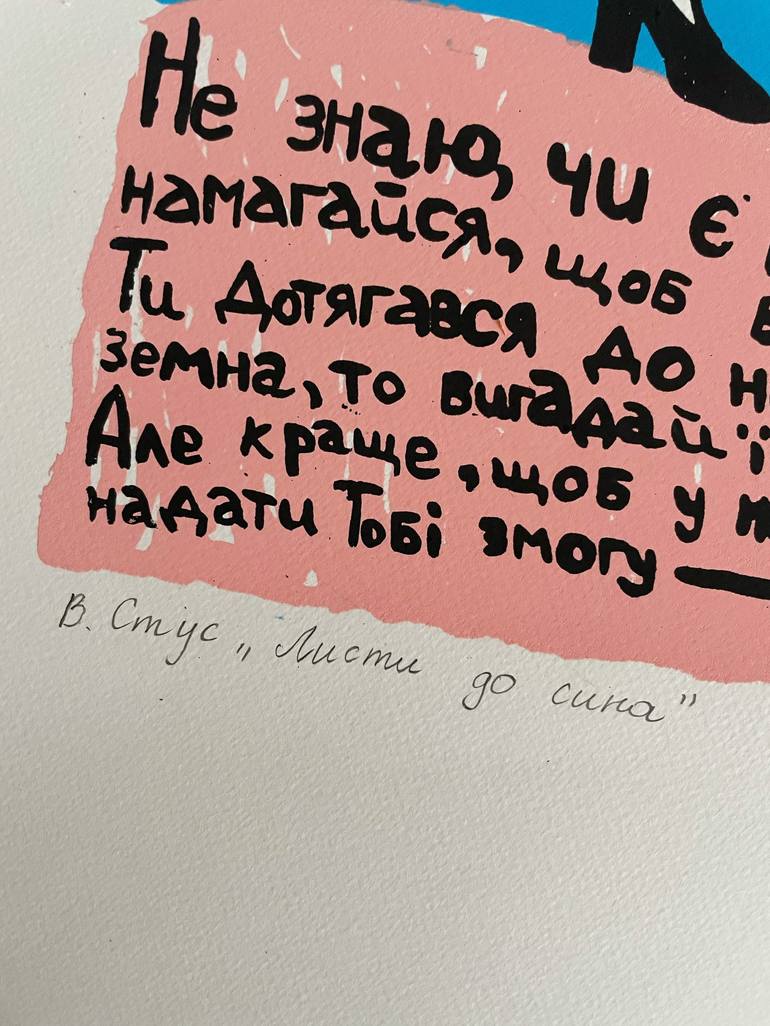 Не знаю, чи є
намагайся, щоб в
Ти Дотягався до н
земна, то вигадай її
Але краще, щоб у
надати Тобі змогу —
В. Стус „Листи до сина"